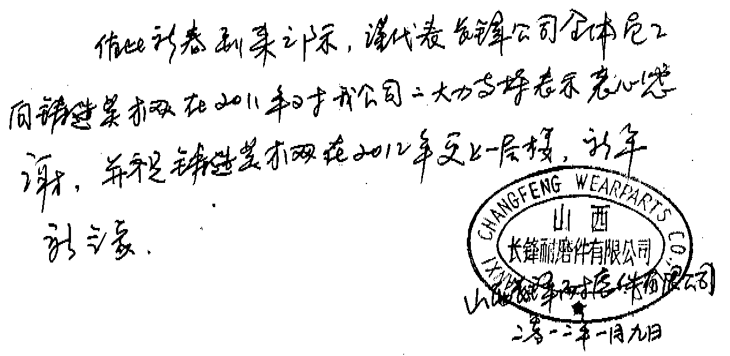 值此新春到来之际，谨代表长锋公司全体员工
向铸造英才网在2011年对我公司之大力支持表示衷心感
谢，并祝铸造英才网在2012年更上一层楼，新年
新气象.
SHANXI CHANGFENG WEARPARTS CO.,
山西
长锋耐磨件有限公司
山西长锋耐磨件有限公司
二零一二年一月九日